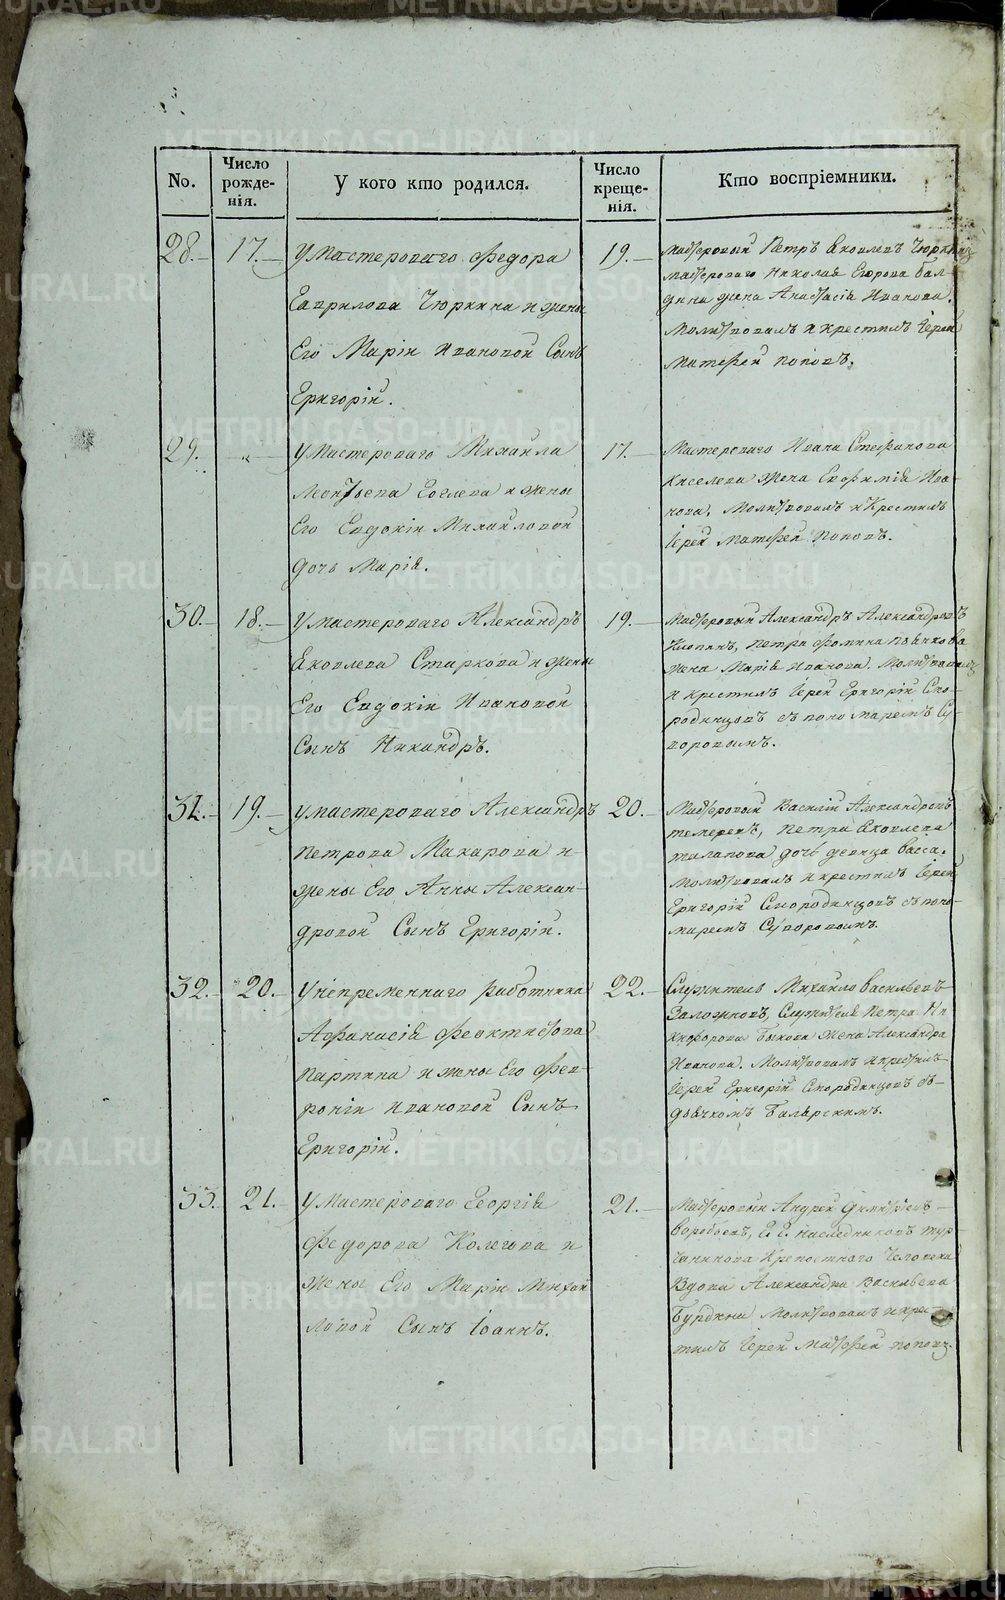 No.
Число рожде- нія.
У кого кто родился.
Число креще- нія.
Кто воспріемники.
28.
17.
У Мастероваго Федора
Гаврилова Чюркина и жены
Его Маріи Ивановой Сынъ
Григорій.
19.
Мастеровый Петръ Яковлевъ Чюркинъ
Мастероваго Николая Егорова Бал-
дина жена Анастасія Иванова.
Молитвовалъ и крестилъ Іерей
Матфей Поповъ.
29.
-"-
У Мастероваго Михаила
Леонтьева Гоглева и жены
Его Евдокіи Михайловой
дочь Марія.
17.
Мастероваго Ивана Стефанова
Киселева жена Евфимія Ива-
нова, Молитвовалъ и Крестилъ
Іерей Матфей Поповъ.
30.
18.
У Мастероваго Александръ
Яковлева Старкова и жены
Его Евдокіи Ивановой
Сынъ Никандръ.
19.
Мастеровый Александръ Александровъ
Петра Фомина
жена Марія Иванова. Молитвовалъ
и крестилъ Іерей Григорій Смо-
родинцовъ съ пономаремъ Су-
воровымъ.
31.
19.
У мастероваго Александръ
Петрова Макарова и
жены Его Анны Алексан-
дровой Сынъ Григорій.
20.
Мастеровый Василій Александровъ
Петра Яковлева
дочь девица Васса.
Молитвовалъ и крестилъ Іерей
Григорій Смородинцовъ съ поно-
маремъ Суворовымъ.
32.
20.
У непременнаго работника
Афанасія Феоктистова
Партина и жены Его Фев-
роніи Ивановой Сынъ
Григорій.
22.
Служитель Михайло Васильевъ
Заложновъ, Служителя Петра Ни-
кифорова Быкова жена Александра
Иванова. Молитвовалъ и крестилъ
Іерей Григорій Смородинцовъ съ
дьячкомъ Балярскимъ.
33.
21.
У Мастероваго Георгія
Федорова Колегова и
жены Его Маріи Михай
ловой Сынъ Іоаннъ.
21.
Мастеровый Андрей Димитріевъ
Воробьевъ, Г. Г. наследниковъ Тур-
чанинова Крепостнаго Человека
Вдова Александра Васильева
Бурдина Молитвовалъ и крес-
тилъ Іерей Матфей Поповъ.
METRIKI.GASO-URAL.RU